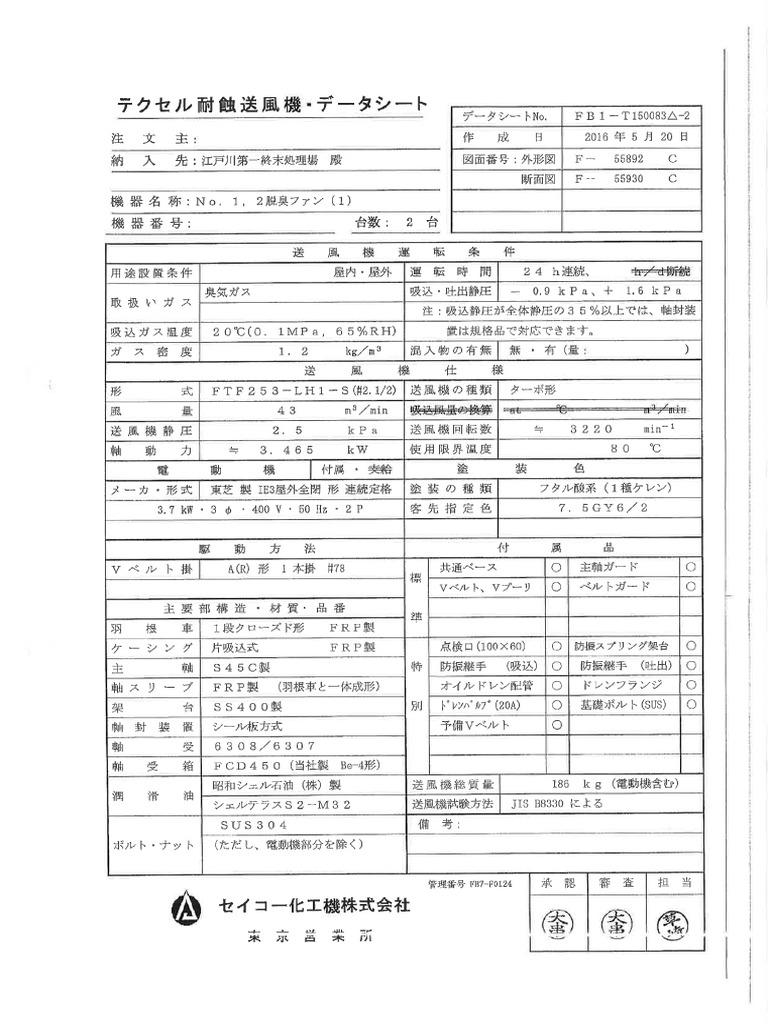 テクセル耐蝕送風機・データシート
データシートNo. FB1-T150083△-2
注文主:
作成日 2016年5月20日
納入先:江戸川第一終末処理場 殿
図面番号:外形図 F- 55892 C
断面図 F- 55930 C
機器名称:No.1,2脱臭ファン(1)
機器番号: 台数: 2 台
送風機運転条件
用途設置条件 屋内・屋外 運転時間 24h連続、 h/d断続
取扱いガス 臭気ガス 吸込・吐出静圧 - 0.9 kPa、+ 1.6 kPa
注:吸込静圧が全体静圧の35%以上では、軸封装
吸込ガス温度 20℃(0.1MPa,65%RH) 置は規格品で対応できます。
ガス密度 1.2 kg/m³ 混入物の有無 無・有(量: )
送風機仕様
形式 FTF253-LH1-S(#2.1/2) 送風機の種類 ターボ形
風量 43 m³/min 吸込風量の換算 at ℃ m³/min
送風機静圧 2.5 kPa 送風機回転数 ≒ 3220 min⁻¹
軸動力 ≒ 3.465 kW 使用限界温度 80 ℃
電動機 付属・支給 塗装色
メーカ・形式 東芝 製 IE3屋外全閉 形 連続定格 塗装の種類 フタル酸系(1種ケレン)
3.7 kW・3 φ・400 V・50 Hz・2 P 客先指定色 7.5GY6/2
駆動方法 付属品
Vベルト掛 A(R) 形 1 本掛 #78 標準 共通ベース ○ 主軸ガード ○
Vベルト、Vプーリ ○ ベルトガード ○
主要部構造・材質・品番
羽根車 1段クローズド形 FRP製
ケーシング 片吸込式 FRP製 特別 点検口(100×60) ○ 防振スプリング架台 ○
主軸 S45C製 防振継手 (吸込) ○ 防振継手 (吐出) ○
軸スリーブ FRP製 (羽根車と一体成形) オイルドレン配管 ○ ドレンフランジ ○
架台 SS400製 ドレンバルブ(20A) ○ 基礎ボルト(SUS) ○
軸封装置 シール板方式 予備Vベルト ○
軸受 6308/6307
軸受箱 FCD450(当社製 Be-4形)
潤滑油 昭和シェル石油(株)製 送風機総質量 186 kg(電動機含む)
シェルテラスS2-M32 送風機試験方法 JIS B8330 による
ボルト・ナット SUS304 備考:
(ただし、電動機部分を除く)
管理番号 FB7-F0124 承認 審査 担当
セイコー化工機株式会社
東京営業所
大串 大串